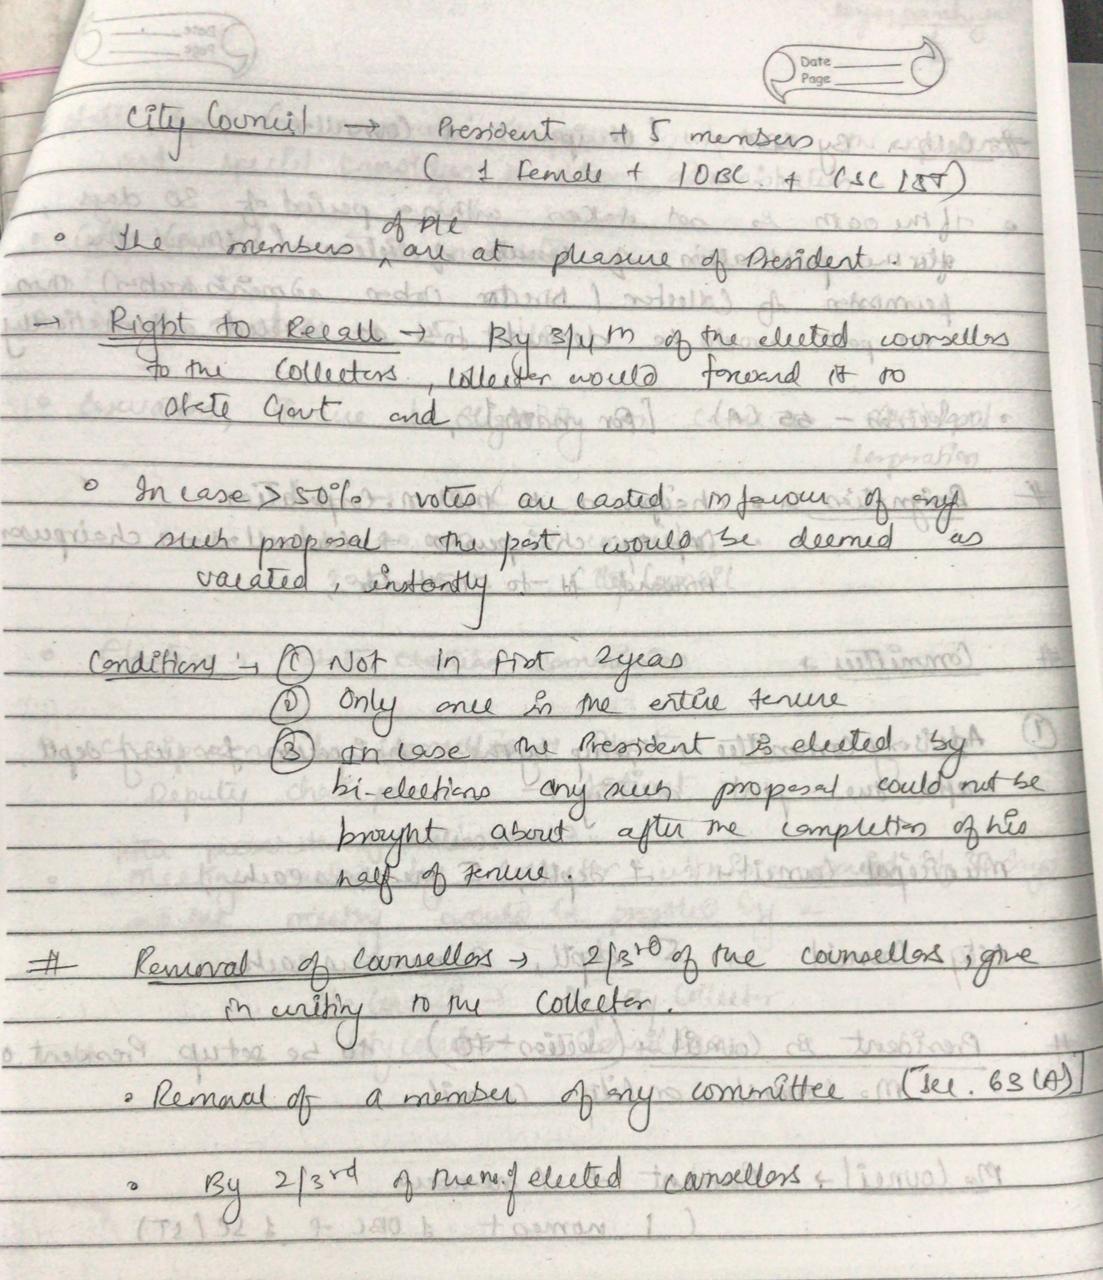 Date
Page
City Council → President + 5 members
( 1 Female + 1 OBC. + (SC / ST)
of PIC
• The members ^ are at pleasure of President.
→ Right to Recall → By 3/4 m of the elected counsellors
to the Collectors, Collecter would forward it to
State Govt and
• In case > 50% votes are casted in favour of any
such proposal the post would be deemed as
vacated, instantly.
Conditions :→ ① Not in first 2 years
② Only once in the entire tenure
③ In case the President is elected by
bi-elections any such proposal could not be
brought about after the completion of his
half of tenure.
# Removal of Counsellors → 2/3rd of the counsellors, give
in writing to the Collecter.
• Removal of a member of any committee [Sec. 63 (A)]
• By 2/3rd of the no. of elected counsellors.